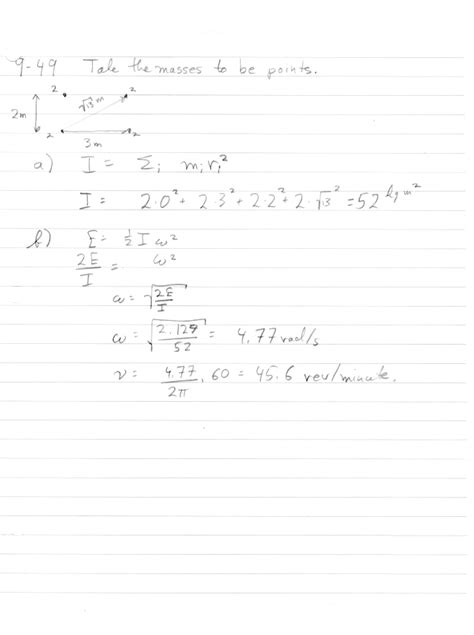 9-49 Take the masses to be points.
2 2
√13 m
2m
2 2
3m
a) I = Σi miri²
I = 2·0² + 2·3² + 2·2² + 2·√13² = 52 kg m²
b) E = ½ I ω²
2E/I = ω²
ω = √(2E/I)
ω = √(2·129/52) = 4.77 rad/s
ν = 4.77/2π · 60 = 45.6 rev/minute.